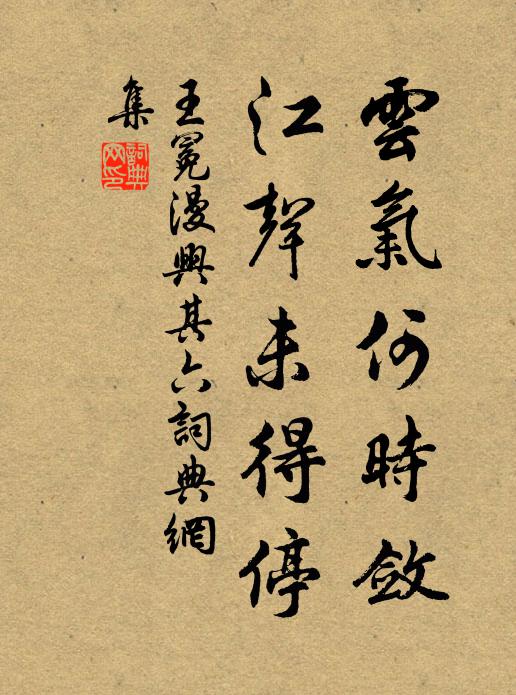 雲氣何時斂
江聲未得停
王冕漫興其六詞典網
集
詞典
网印